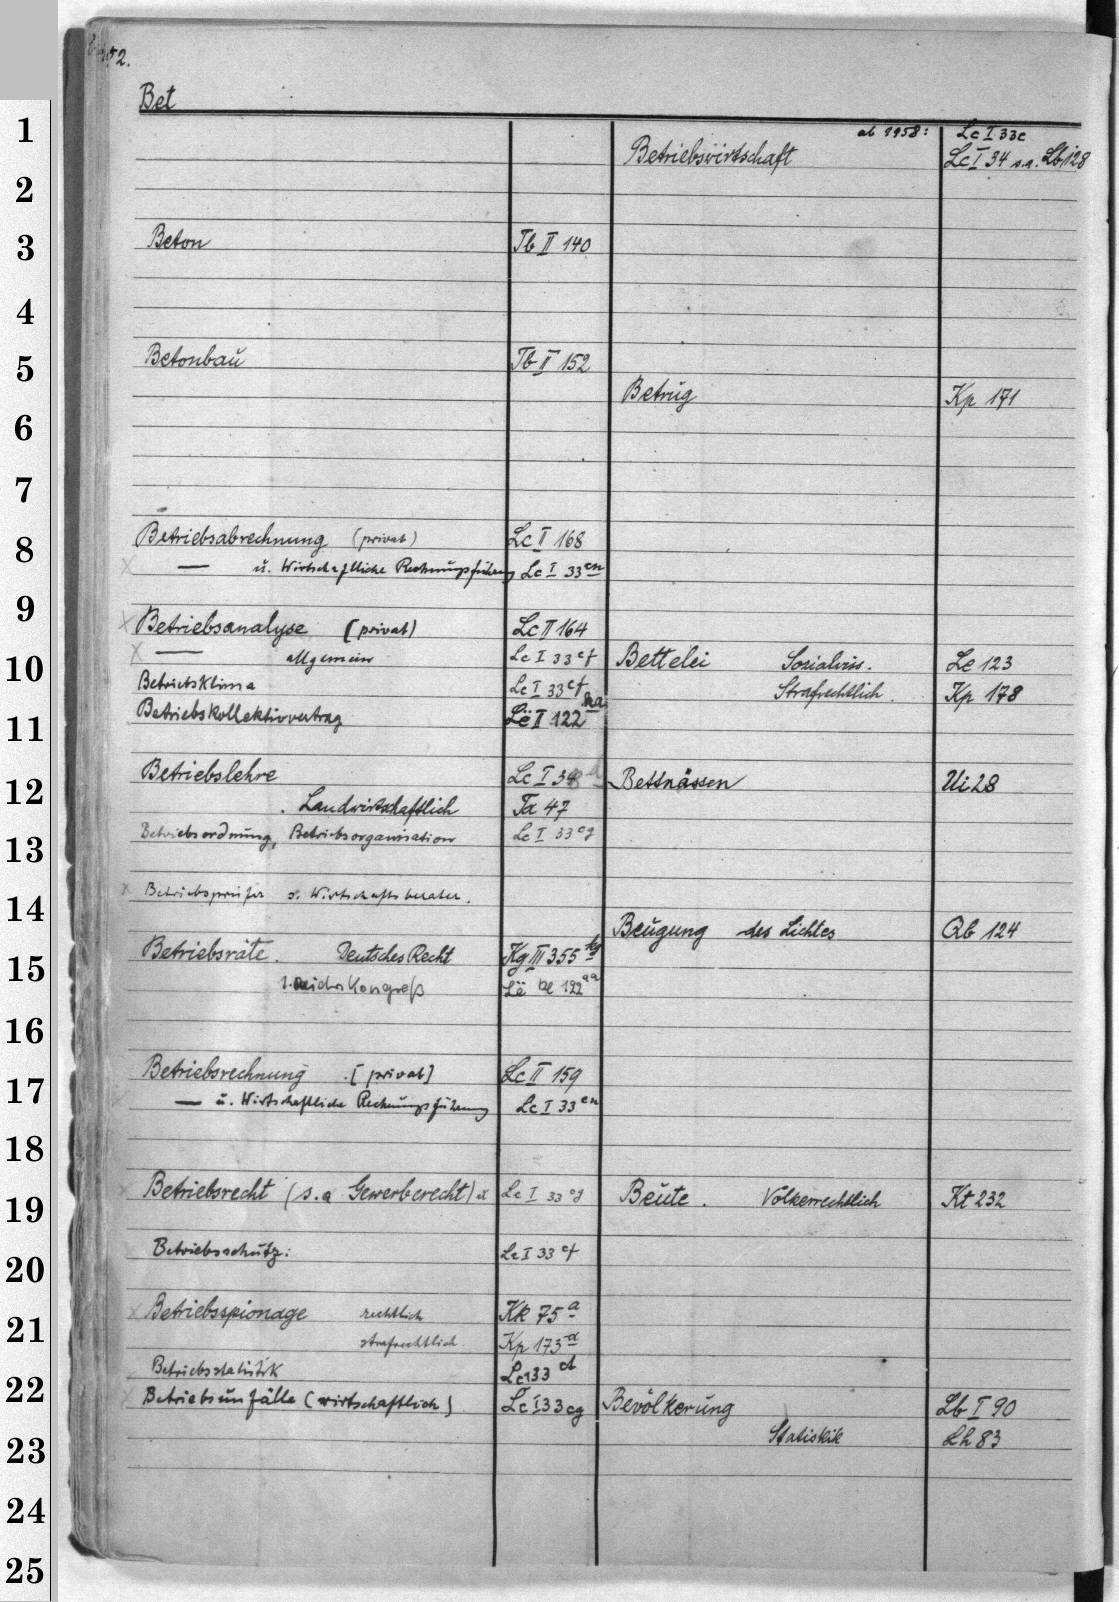 52.
Bet
1
2
3
4
5
6
7
8
9
10
11
12
13
14
15
16
17
18
19
20
21
22
23
24
25
Beton Tb II 140
Betonbau Tb II 152
Betriebsabrechnung (privat) Lc II 168
— u. Wirtschaftliche Rechnungsführung Lc I 33 en
Betriebsanalyse (privat) Lc II 164
— allgemein Lc I 33 ef
Betriebsklima Lc I 33 ef
Betriebskollektivvertrag Lë II 122 na
Betriebslehre Lc I 34
Landwirtschaftlich Ta 47
Betriebsordnung, Betriebsorganisation Lc I 33 eg
Betriebsprüfer s. Wirtschaftsberater.
Betriebsräte. Deutsches Recht Kg III 355 kg
1. Reichskongreß Lë 122 aa
Betriebsrechnung [privat] Lc II 159
— u. Wirtschaftliche Rechnungsführung Lc I 33 en
Betriebsrecht (s.a Gewerberecht) Lc I 33 eg
Betriebsschutz: Lc I 33 ef
Betriebsspionage rechtlich Kk 75 a
strafrechtlich. Kp 173 d
Betriebsstatistik Lc I 33 d
Betriebsunfälle (wirtschaftlich) Lc I 33 eg
ab 1958: Lc I 33e
Betriebswirtschaft Lc I 34 s.a. Lb i 28
Betrug Kp 171
Bettelei Sozialwiss. Le 123
Strafrechtlich. Kp 178
Bettnässen Ui 28
Beugung des Lichtes Qb 124
Beute. Völkerrechtlich Kt 232
Bevölkerung Lb I 90
Statistik Lh 83